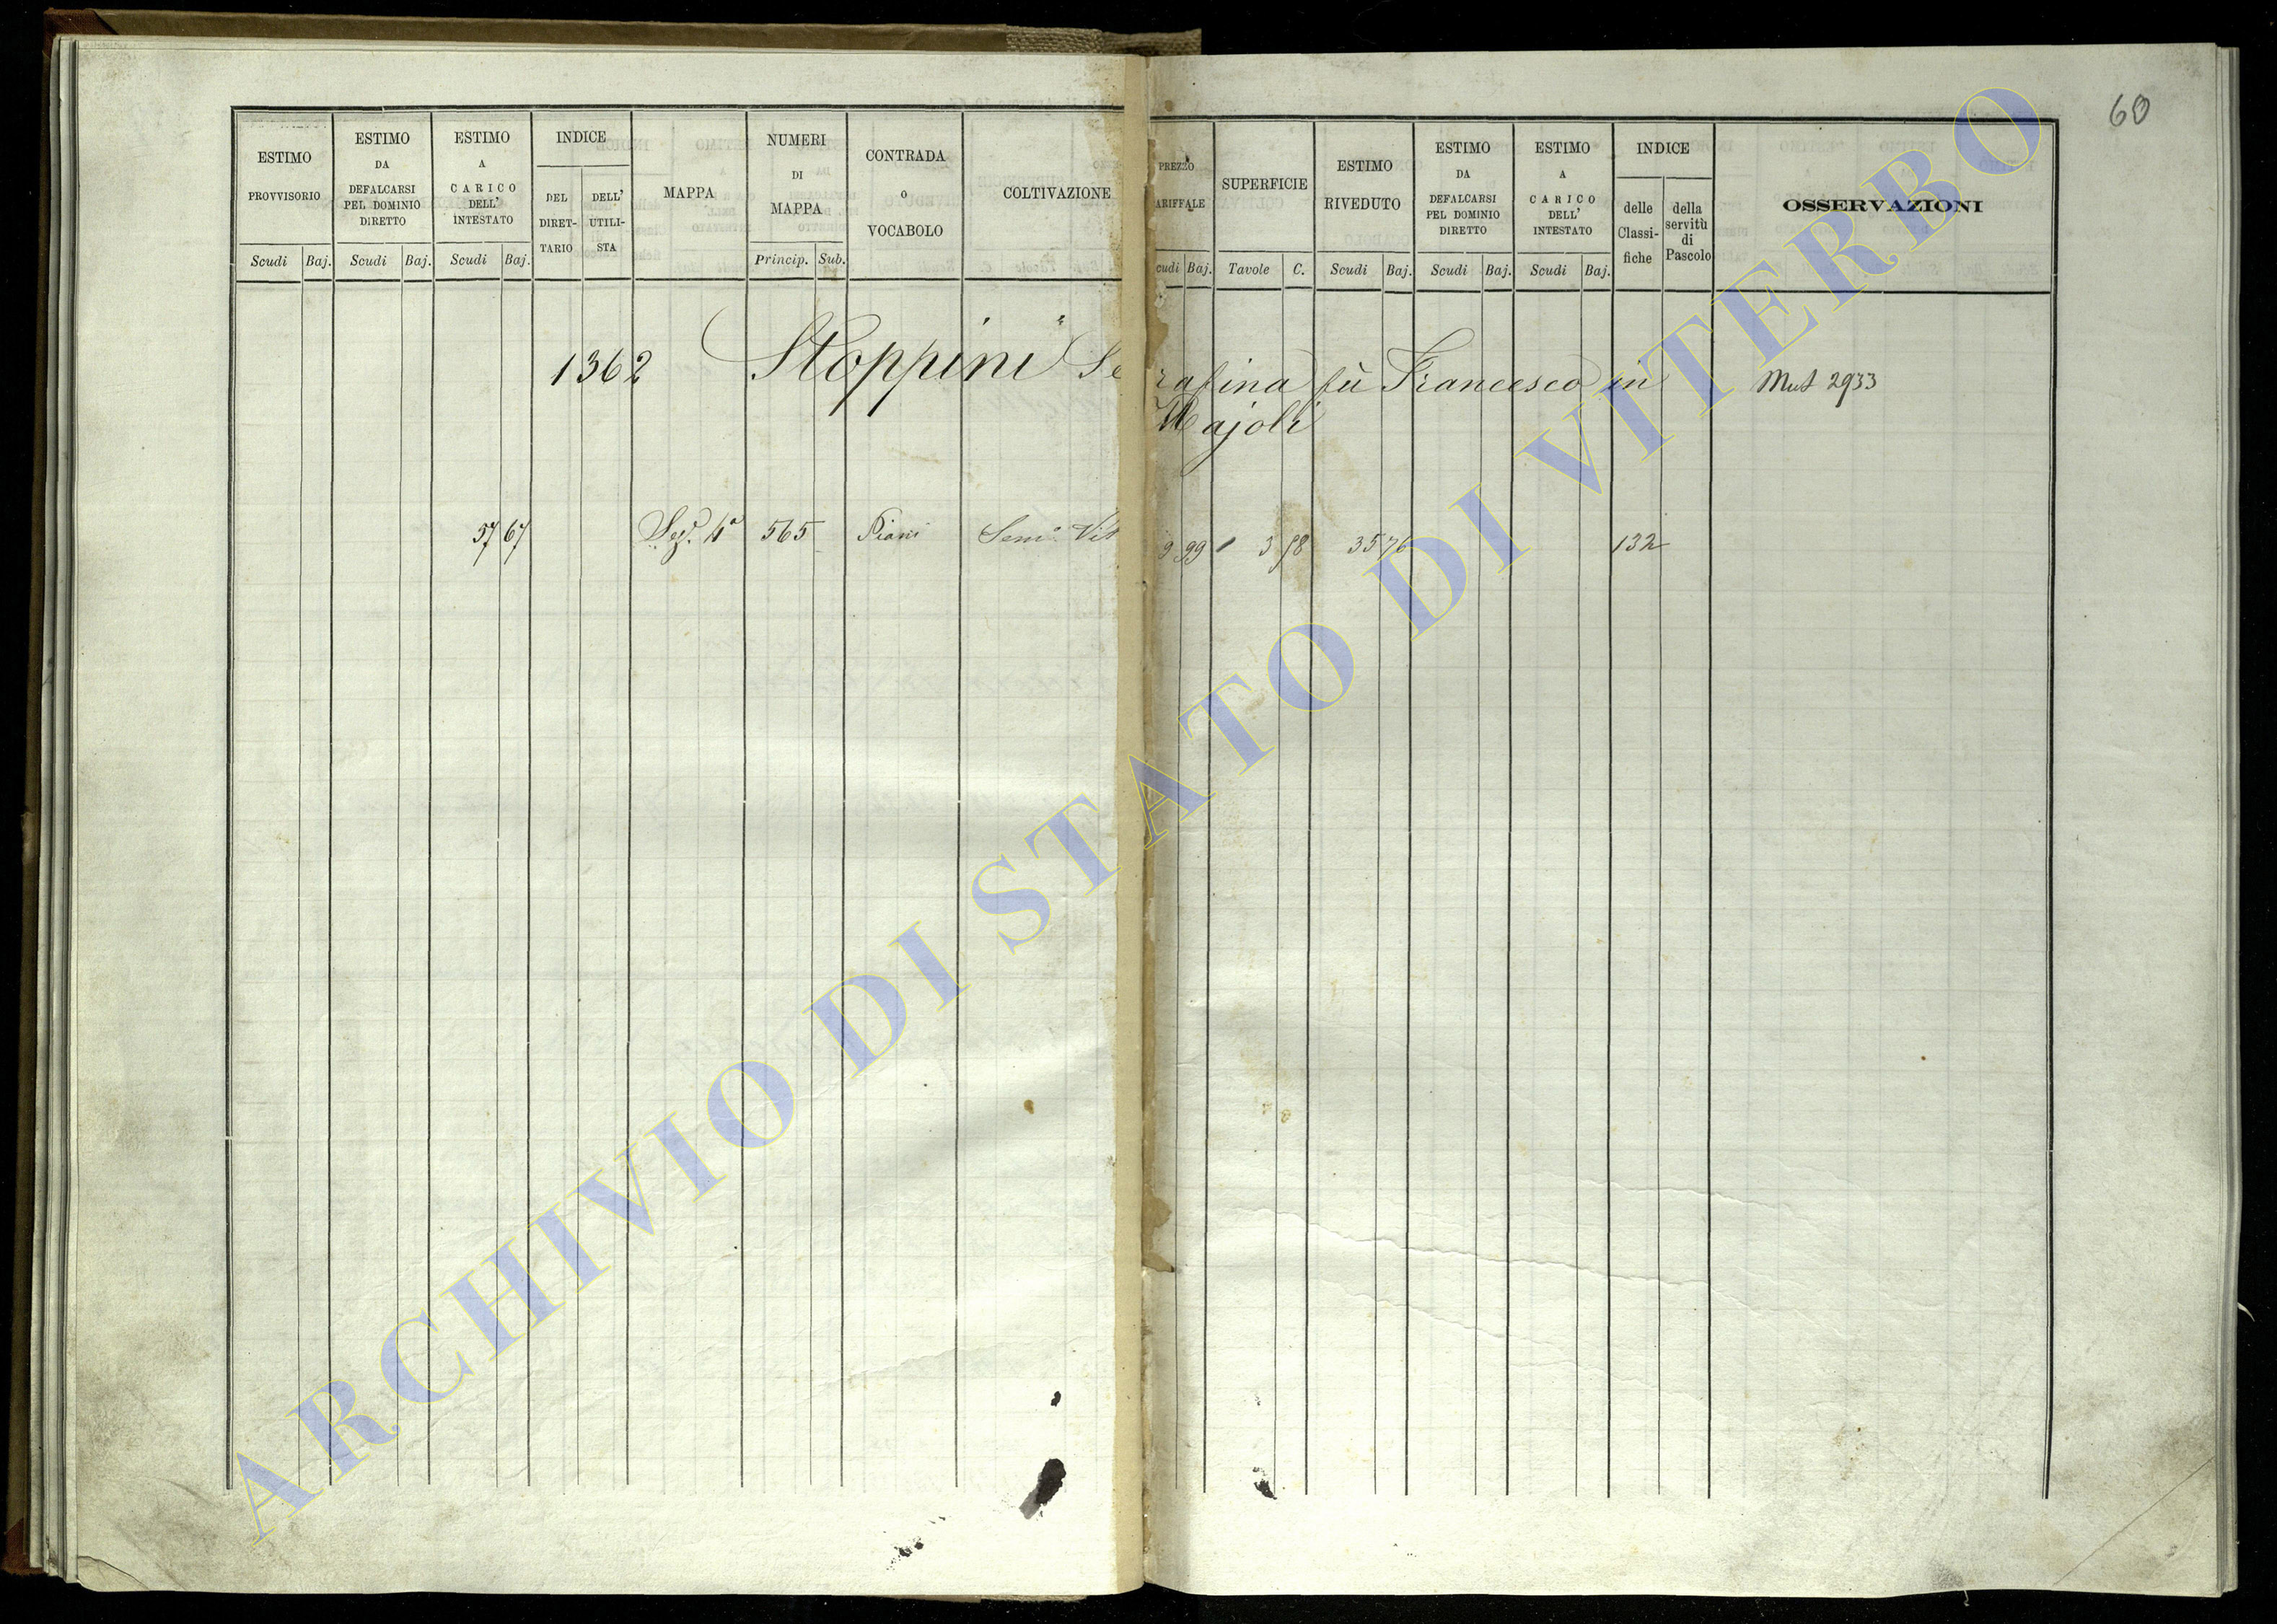 60
ESTIMO PROVVISORIO
ESTIMO DA DEFALCARSI PEL DOMINIO DIRETTO
ESTIMO A CARICO DELL' INTESTATO
INDICE
DEL DIRET-TARIO
DELL' UTILI-STA
MAPPA
NUMERI DI MAPPA
CONTRADA O VOCABOLO
COLTIVAZIONE
PREZZO ARIFFALE
SUPERFICIE
ESTIMO RIVEDUTO
ESTIMO DA DEFALCARSI PEL DOMINIO DIRETTO
ESTIMO A CARICO DELL' INTESTATO
INDICE
delle Classi-fiche
della servitù di Pascolo
OSSERVAZIONI
Scudi Baj. Scudi Baj. Scudi Baj. Princip. Sub. cudi Baj. Tavole C. Scudi Baj. Scudi Baj. Scudi Baj.
1362 Stoppini Serafina fù Francesco in Mut 2933
Majoli
57 67 Sez. 4ª 565 Piani Sem. Vit 9 99 3 58 35 76 132
ARCHIVIO DI STATO DI VITERBO